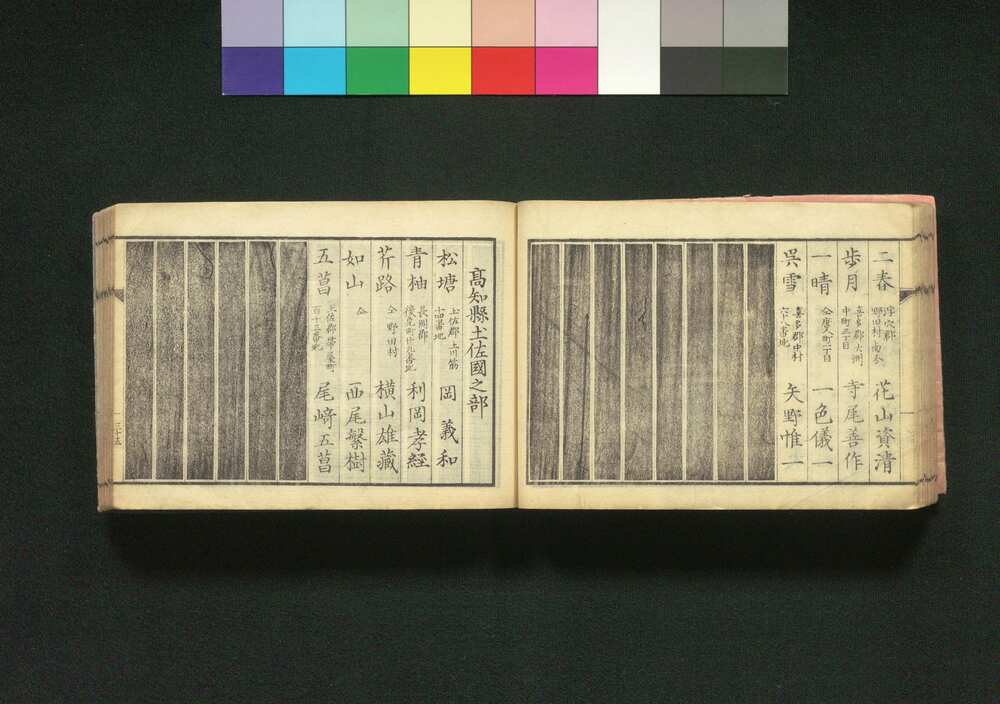 二春 花山資清
歩月 喜多郡大洲 中町三丁目 寺尾善作
一晴 一色儀一
呉雪 喜多郡中村 矢野惟一
高知縣土佐國之部
松塘 土佐郡 十四番地 岡義和
青柚 長岡郡 利岡孝經
芥路 仝 野田村 横山雄藏
如山 仝 西尾繁樹
五菖 土佐郡帯屋町 百十三番地 尾﨑五菖